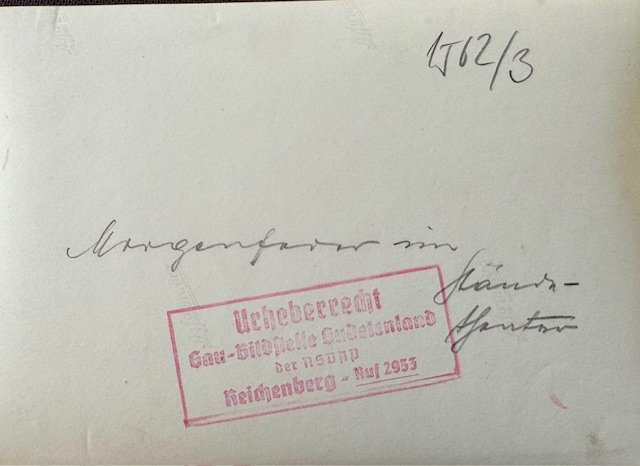 1562/3
Morgenfeier im
Stände-
theater
Urheberrecht
Gau-Bildstelle Sudetenland
der NSDAP
Reichenberg - Ruf 2953